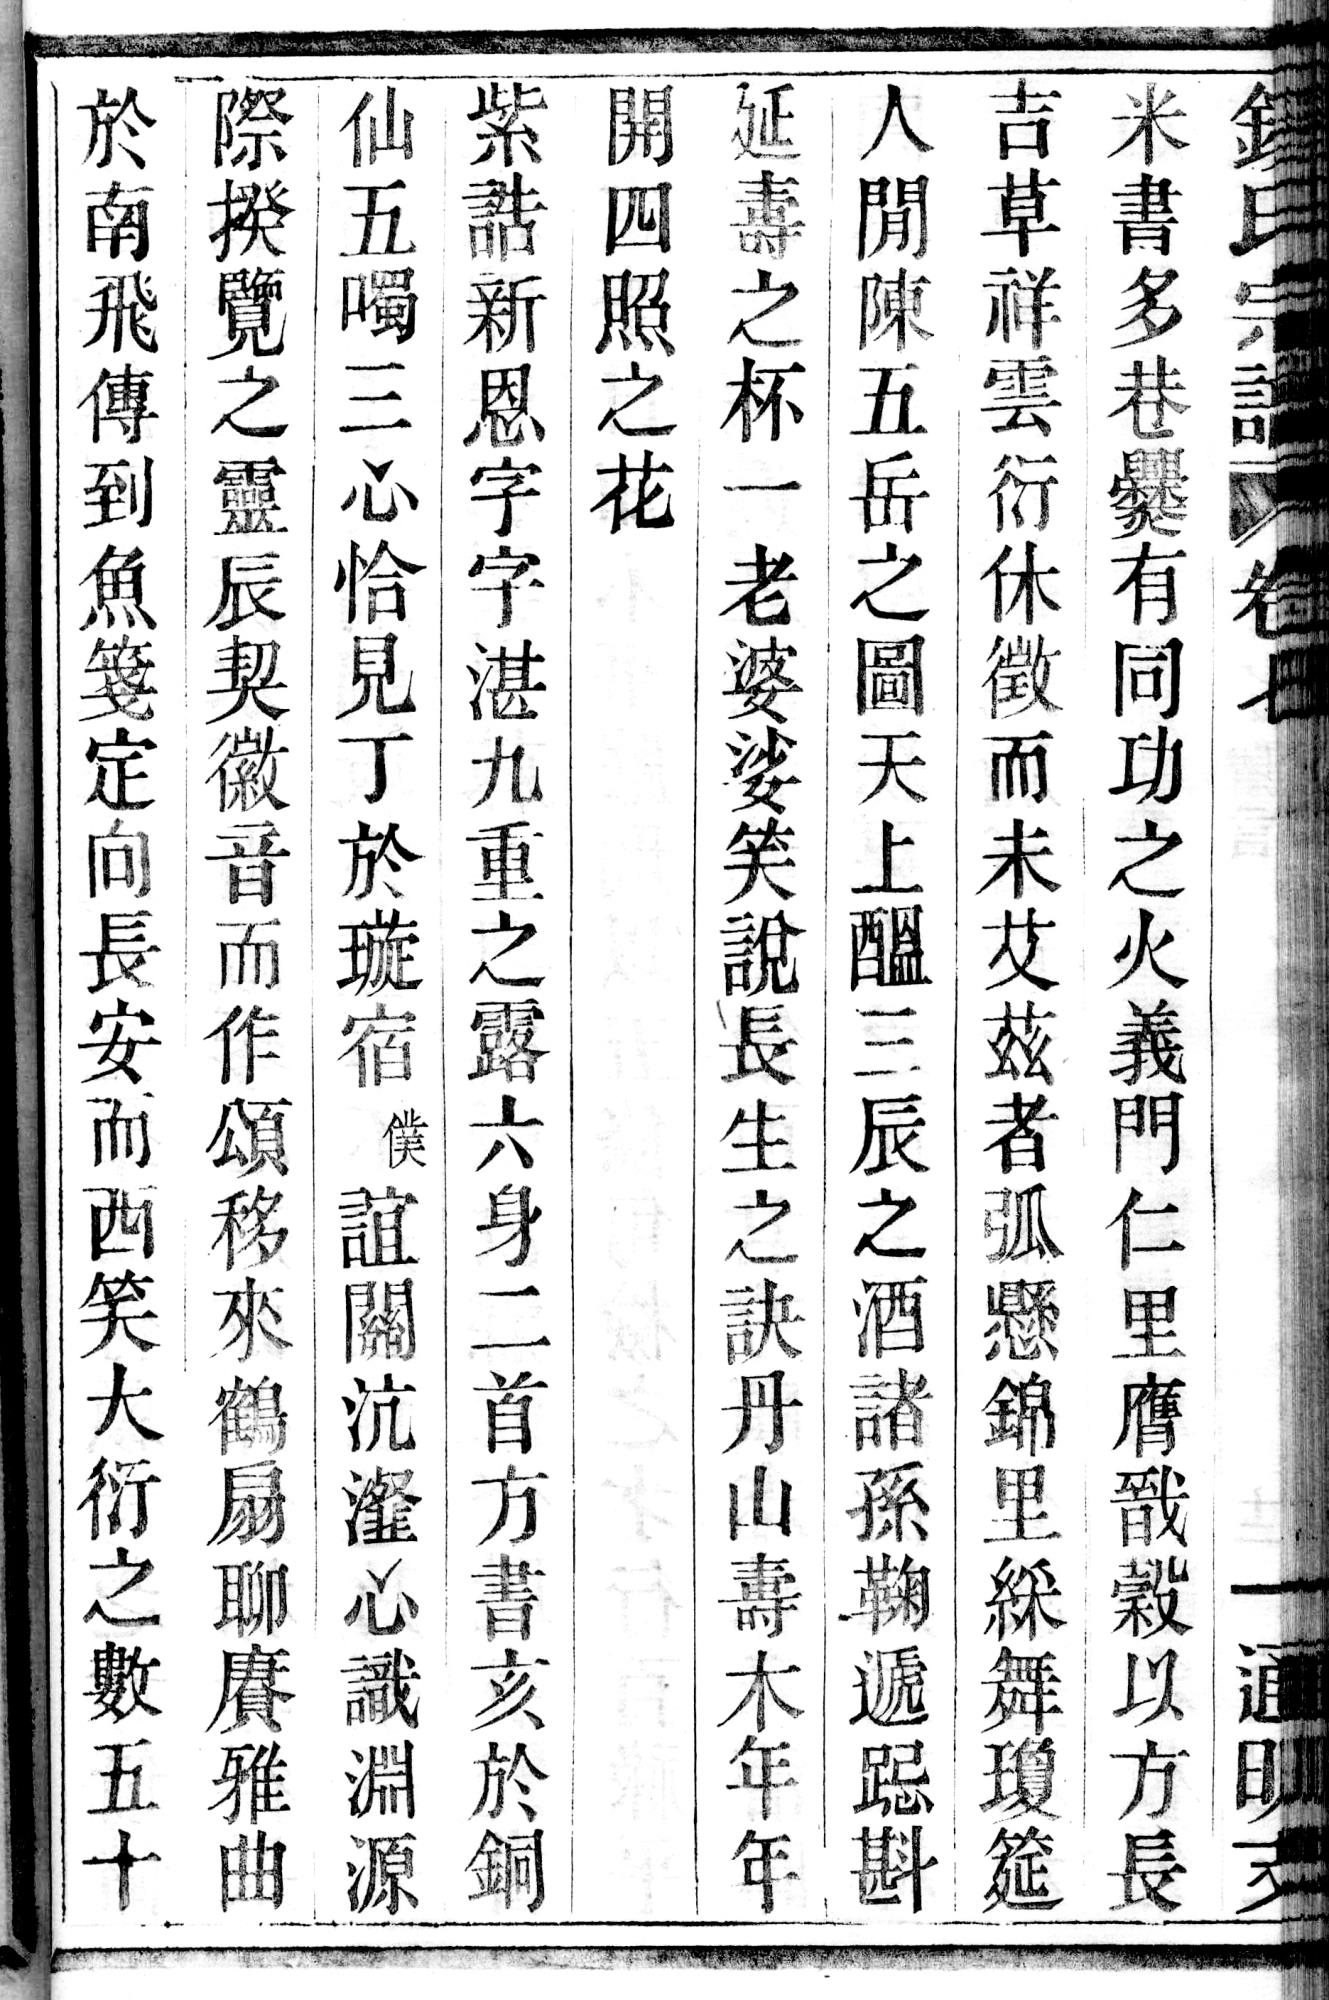 氏宗譜 卷七 通明
米書多巷爨有同功之火義門仁里膺戩穀以方長
吉草祥雲衍休徵而未艾茲者弧懸錦里綵舞瓊筵
人閒陳五岳之圖天上醞三辰之酒諸孫鞠遞跽斟
延壽之杯一老婆娑笑說長生之訣丹山壽木年年
開四照之花
紫誥新恩字字湛九重之露六身二首方書亥於銅
仙五噣三心恰見丁於璇宿僕誼關沆瀣心識淵源
際揆覽之靈辰契徽音而作頌移來鶴扇聊賡雅曲
於南飛傳到魚箋定向長安而西笑大衍之數五十